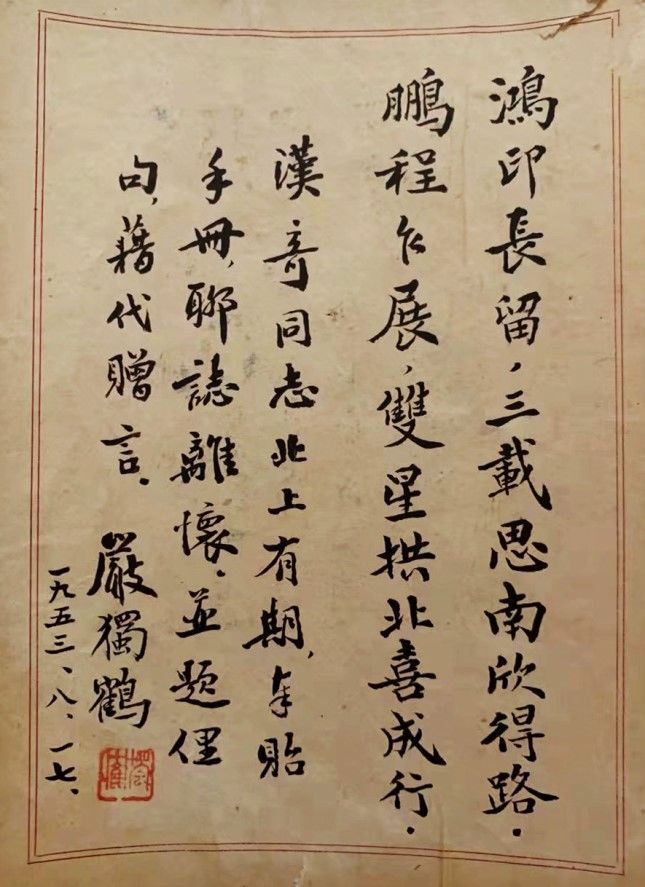 鴻印長留，三載思南欣得路．
鵬程乍展，雙星拱北喜成行．
漢奇同志北上有期，奉貽
手冊，聊誌離懷．並題俚
句，藉代贈言．
嚴獨鶴
一九五三、八、一七、
獨鶴